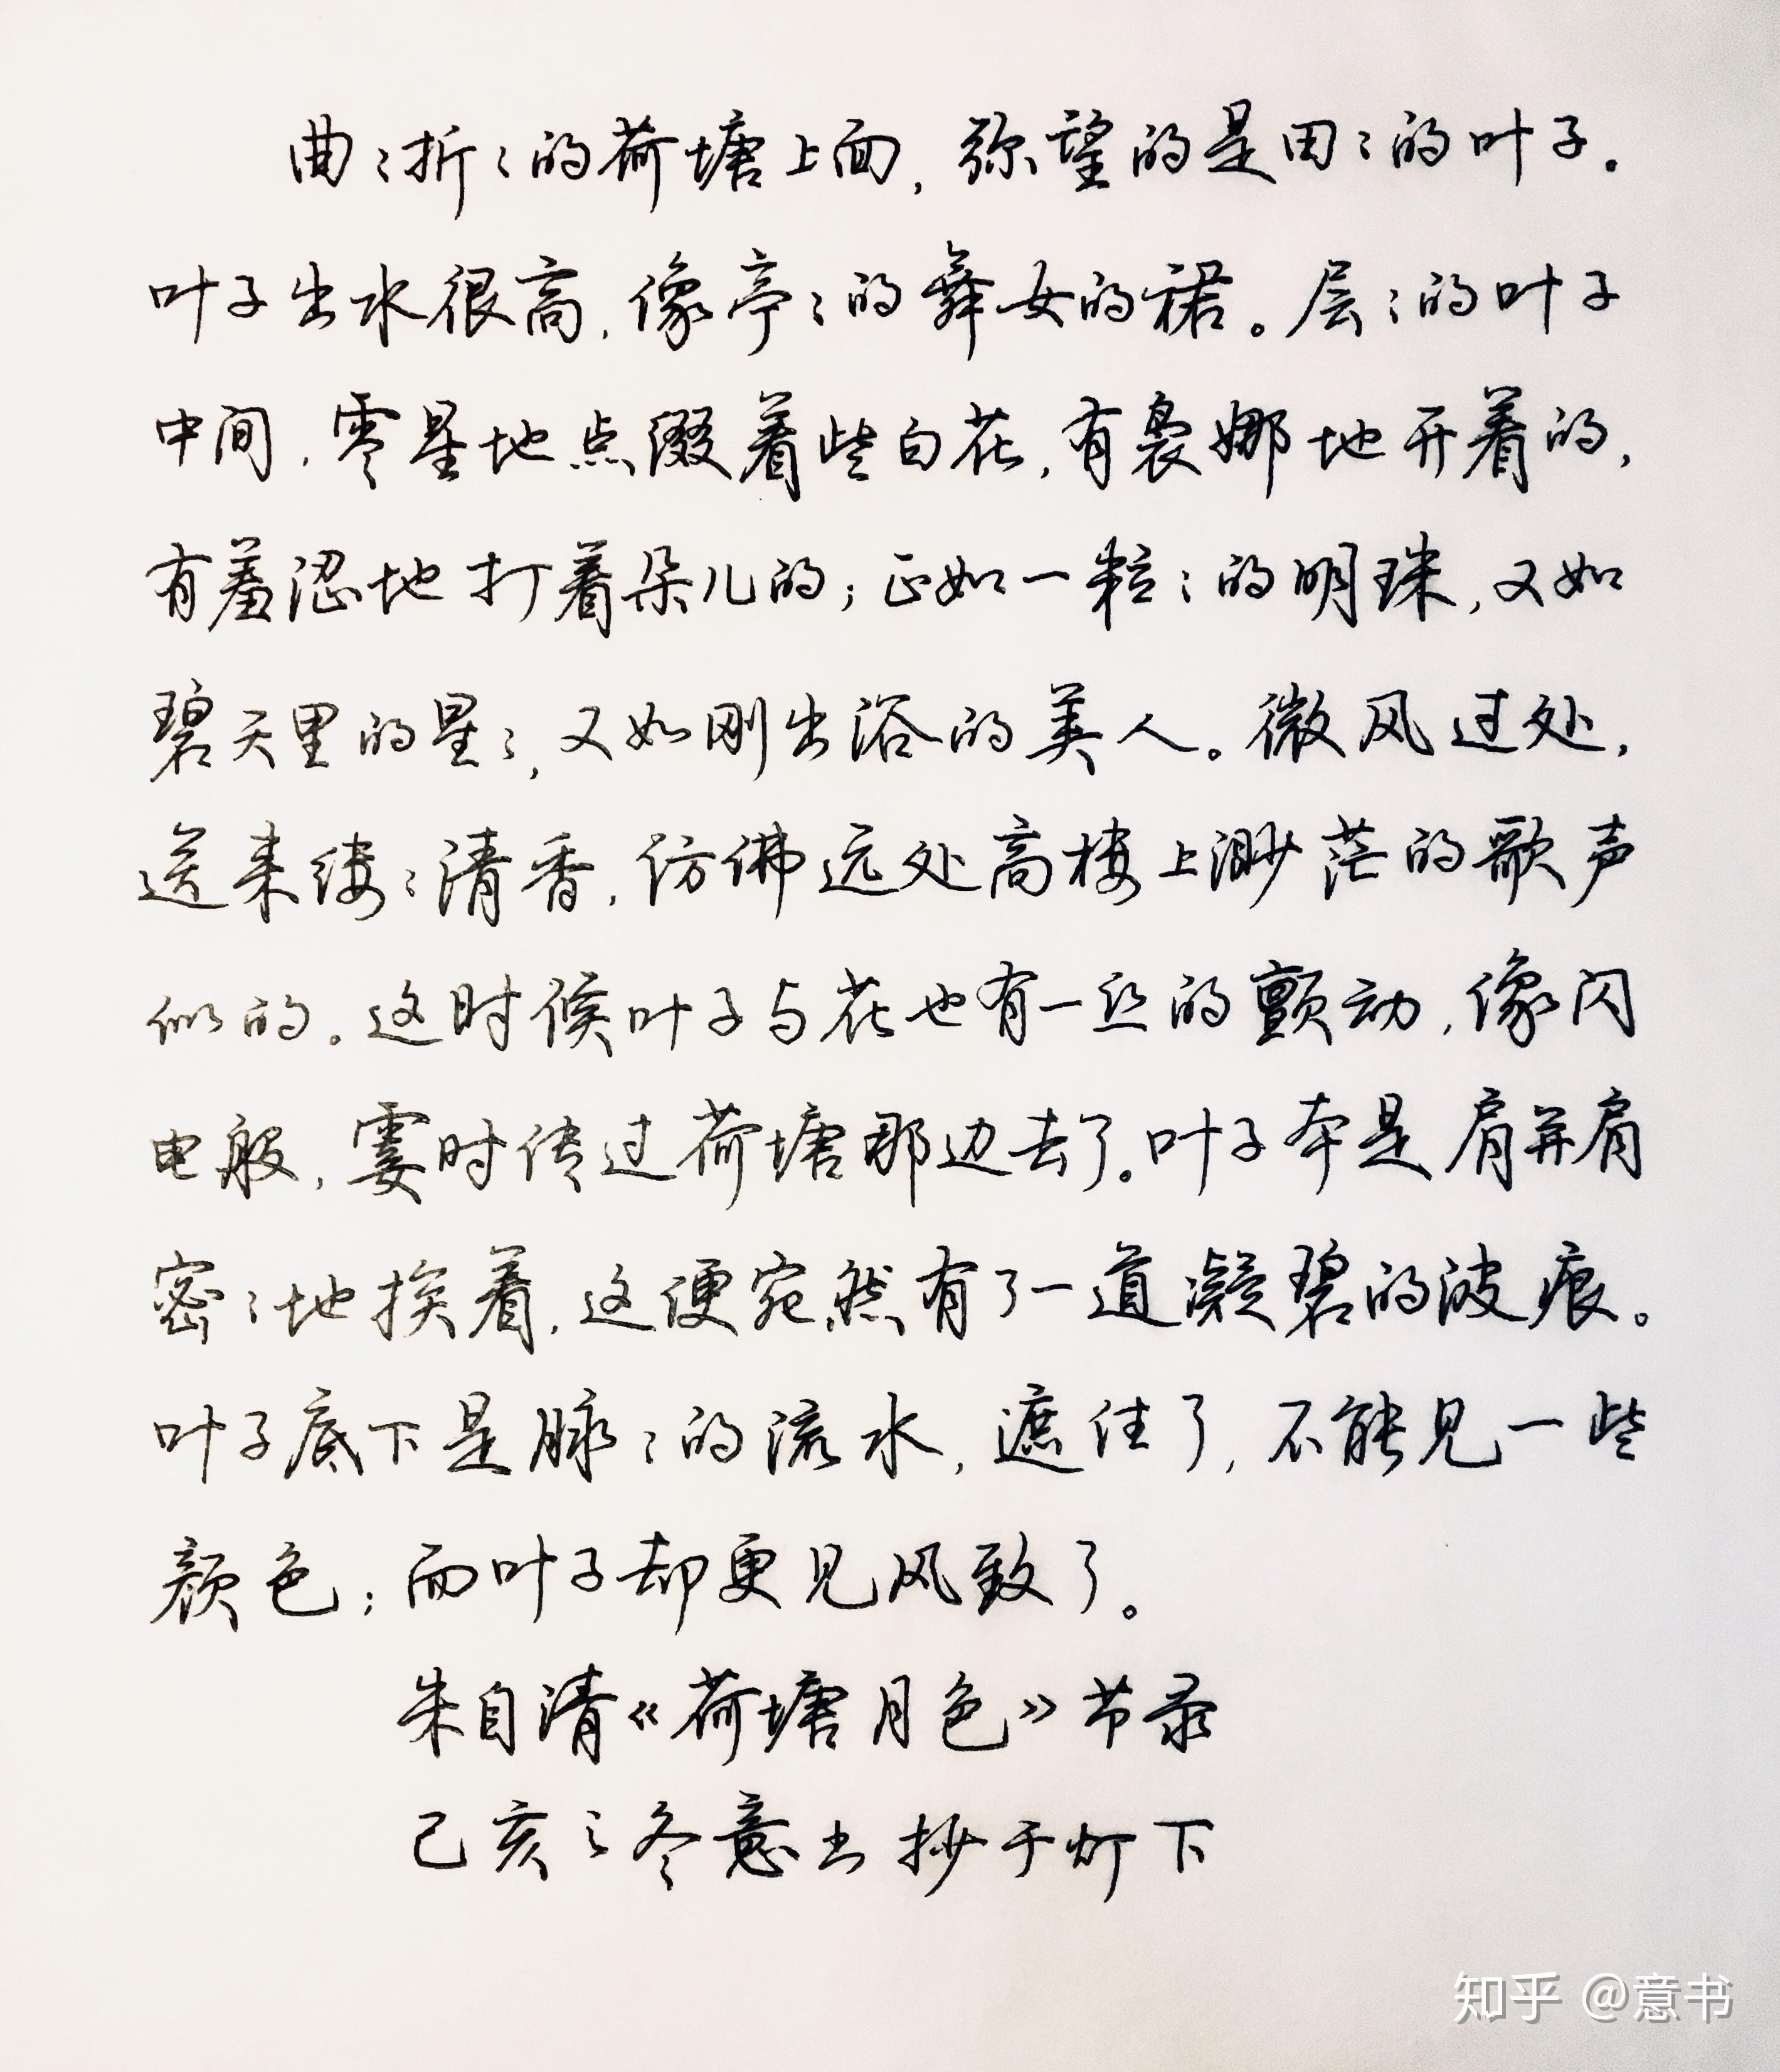 曲〻折〻的荷塘上面,弥望的是田〻的叶子。
叶子出水很高,像亭〻的舞女的裙。层〻的叶子
中间,零星地点缀着些白花,有袅娜地开着的,
有羞涩地打着朵儿的;正如一粒〻的明珠,又如
碧天里的星〻,又如刚出浴的美人。微风过处,
送来缕〻清香,仿佛远处高楼上渺茫的歌声
似的。这时候叶子与花也有一丝的颤动,像闪
电般,霎时传过荷塘那边去了。叶子本是肩并肩
密〻地挨着,这便宛然有了一道凝碧的波痕。
叶子底下是脉〻的流水,遮住了,不能见一些
颜色;而叶子却更见风致了。
朱自清《荷塘月色》节录
己亥之冬意书抄于灯下
知乎 @意书